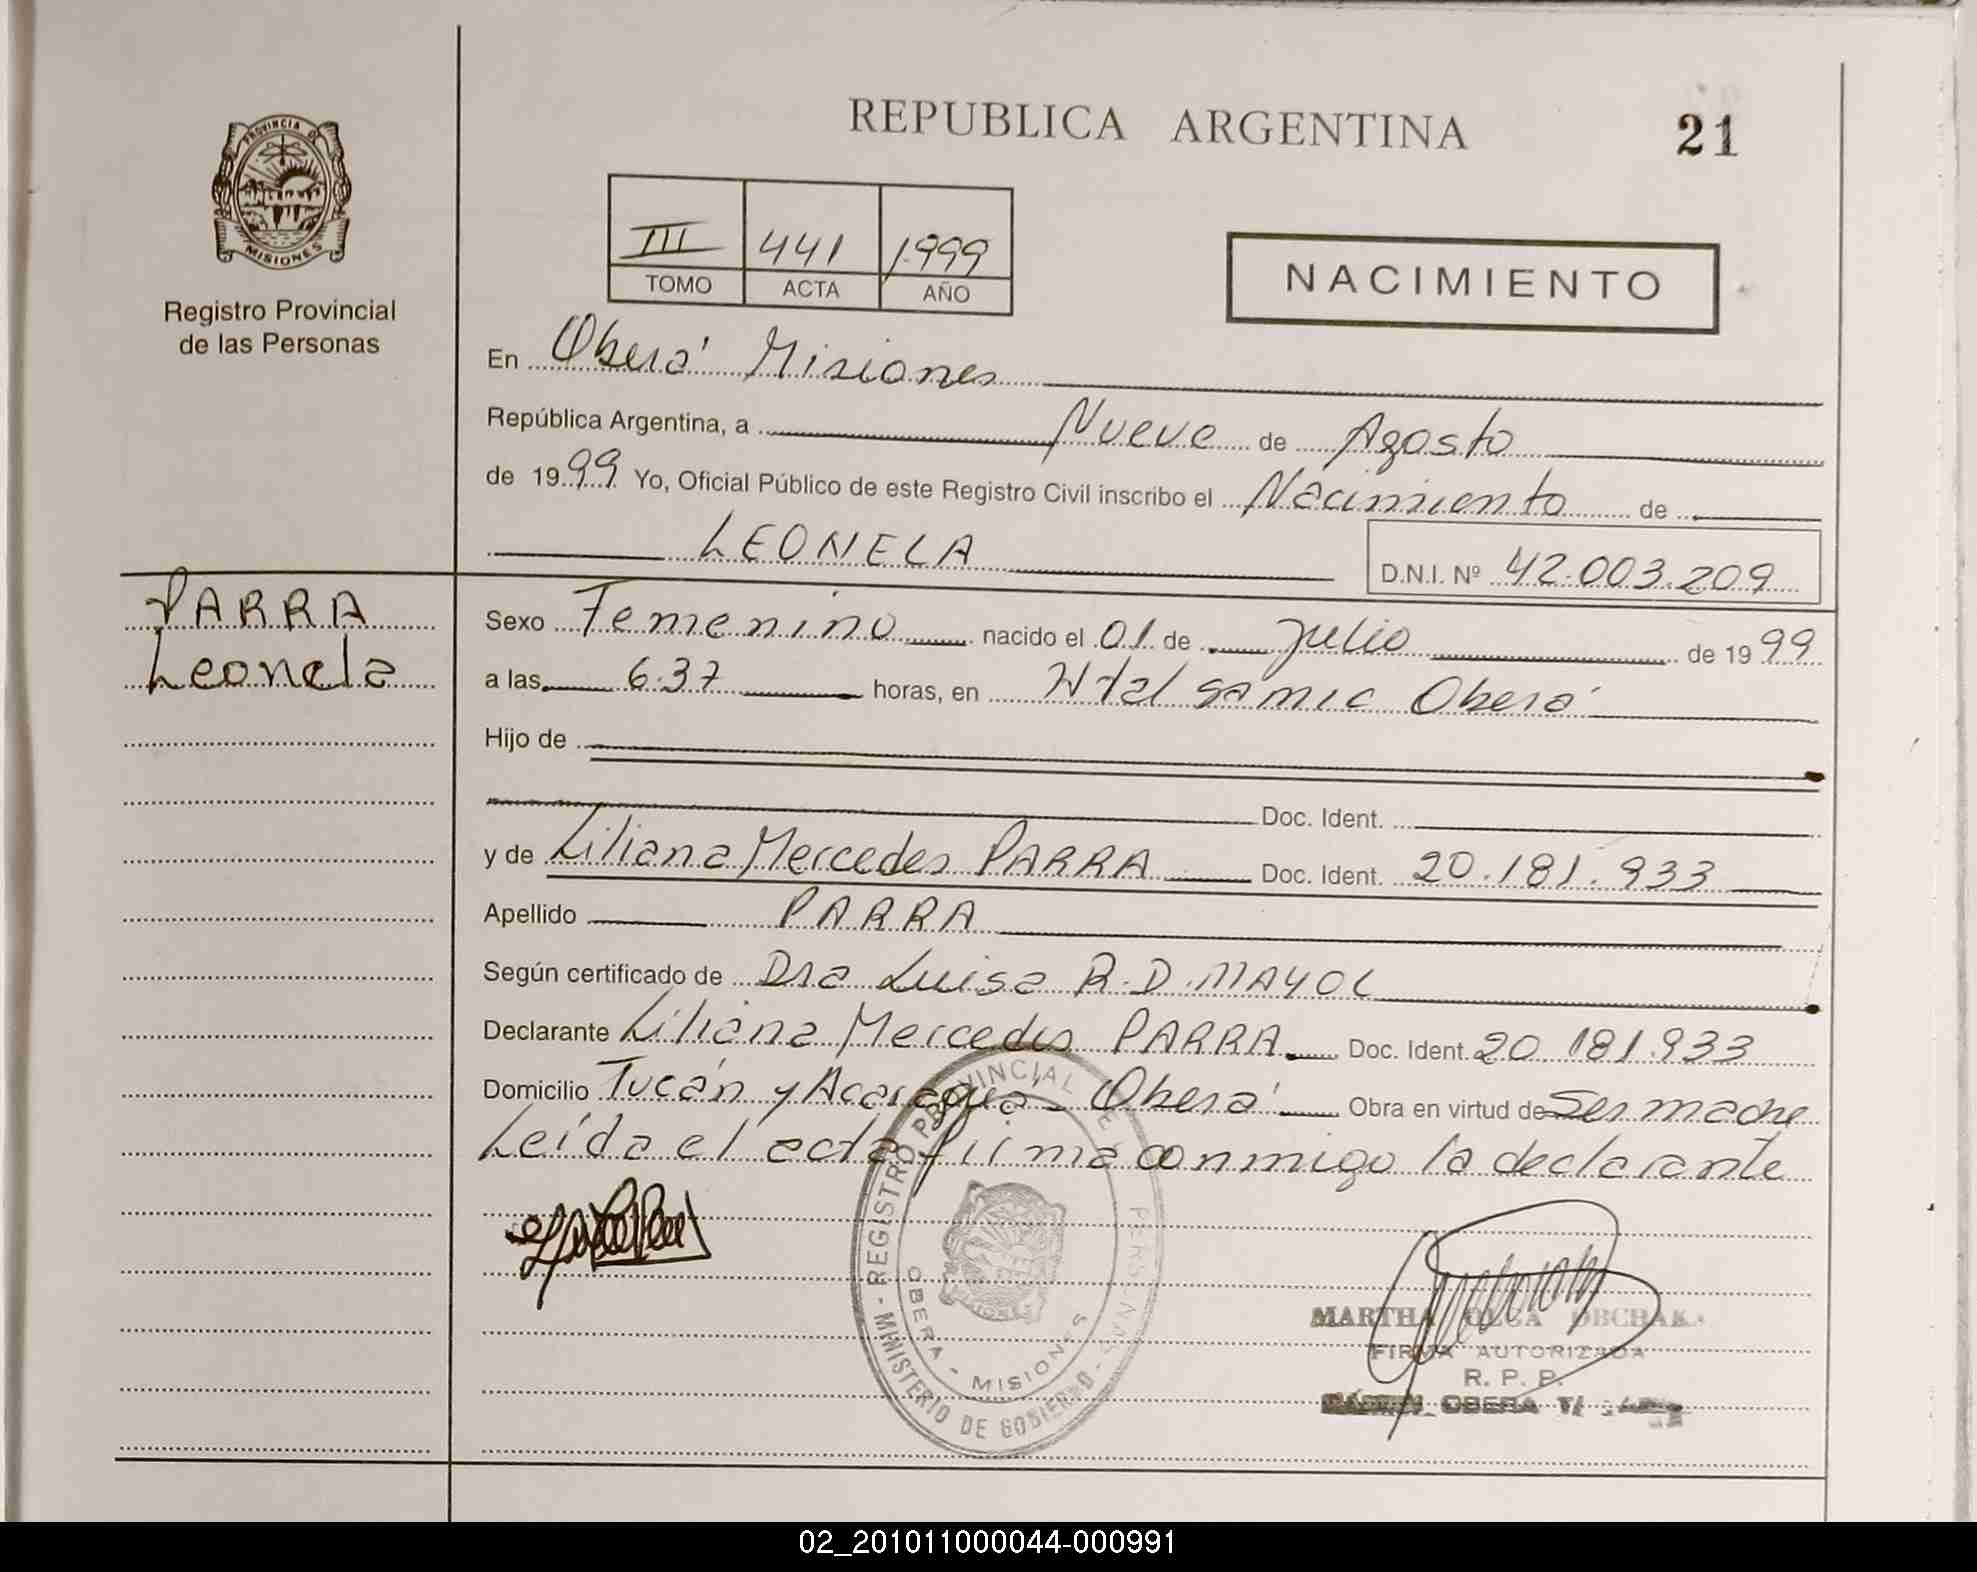 REPUBLICA ARGENTINA
21
PROVINCIA DE
MISIONES
Registro Provincial
de las Personas
III 441 1999
TOMO ACTA AÑO
NACIMIENTO
En Oberá Misiones
República Argentina, a Nueve de Agosto
de 1999 Yo, Oficial Público de este Registro Civil inscribo el Nacimiento de
LEONELA
D.N.I. Nº 42.003.209
PARRA
Leonela
Sexo Femenino nacido el 01 de Julio de 1999
a las 6.37 horas, en Htal samic Oberá
Hijo de
Doc. Ident.
y de Liliana Mercedes PARRA Doc. Ident. 20.181.933
Apellido PARRA
Según certificado de Dra Luisa R.D. MAYOL
Declarante Liliana Mercedes PARRA Doc. Ident. 20.181.933
Domicilio Tucán y Acaragua - Oberá Obra en virtud de Ser madre
Leída el acta firma conmigo la declarante
REGISTRO PROVINCIAL DE PERSONAS
OBERA - MISIONES
- MINISTERIO DE GOBIERNO -
MARTHA OLGA OBCHAK
FIRMA AUTORIZADA
R. P. P.
OBERA
02_201011000044-000991